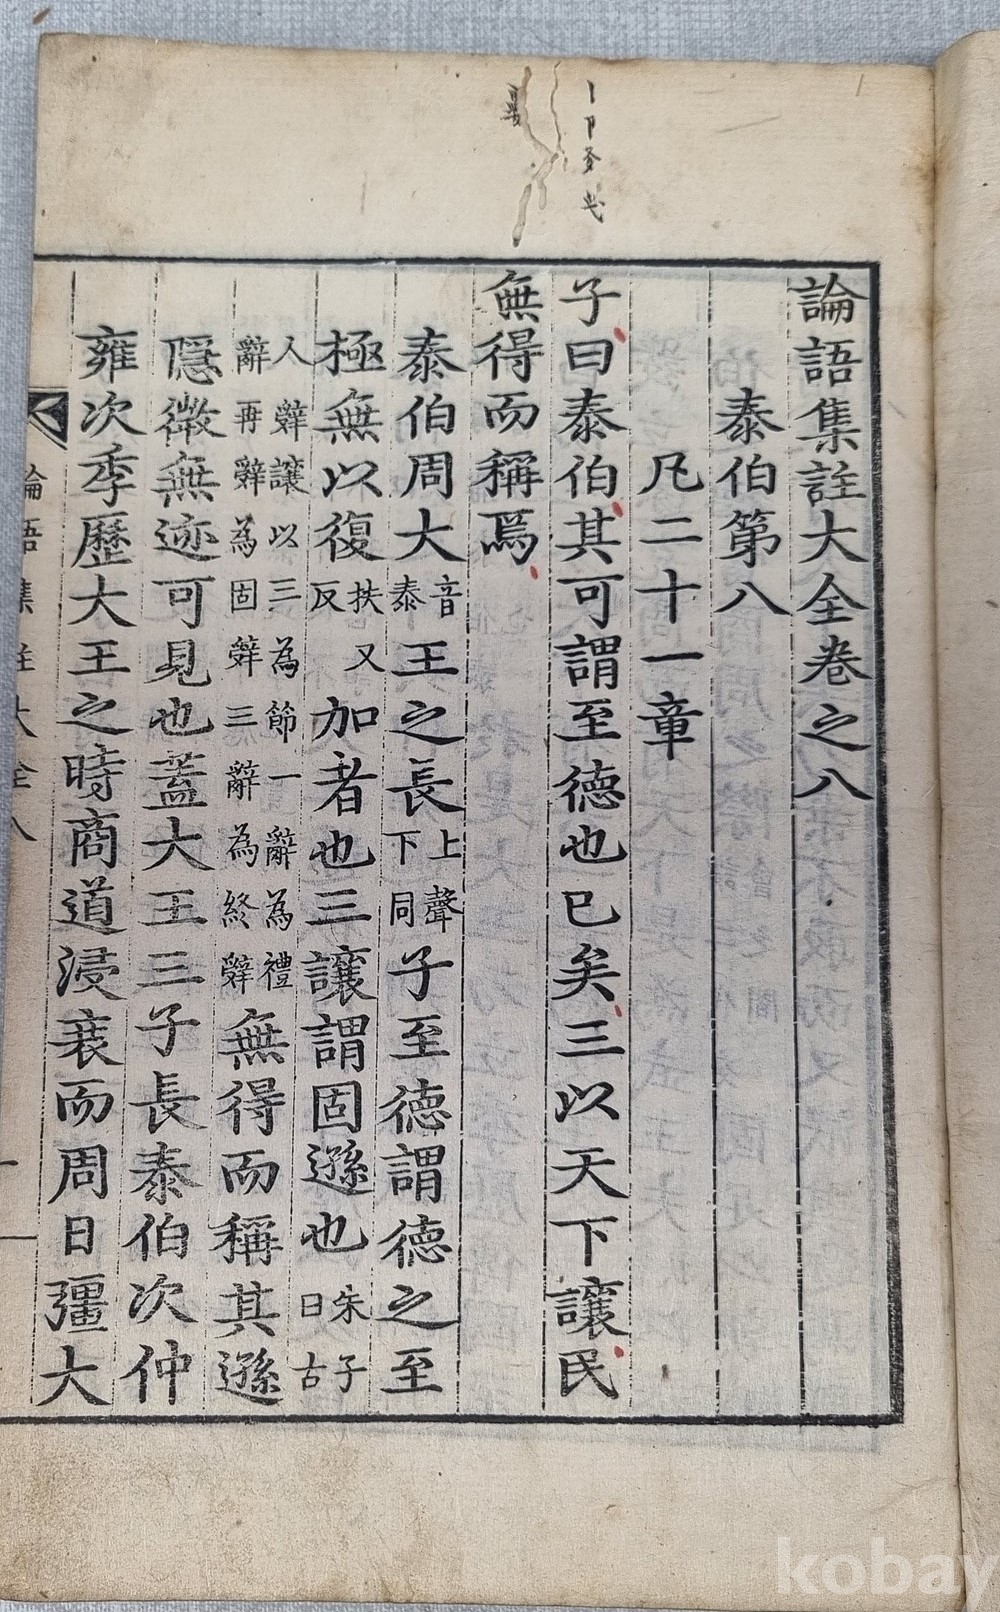 論語集註大全卷之八
泰伯第八
凡二十一章
子曰泰伯其可謂至德也已矣三以天下讓民
無得而稱焉
泰伯周大音泰王之長上聲下同子至德謂德之至
極無以復扶又反加者也三讓謂固遜也朱子曰古
人辭讓以三為節一辭為禮辭再辭為固辭三辭為終辭無得而稱其遜
隱微無迹可見也蓋大王三子長泰伯次仲
雍次季歷大王之時商道浸衰而周日彊大
論語集註大全八
kobay